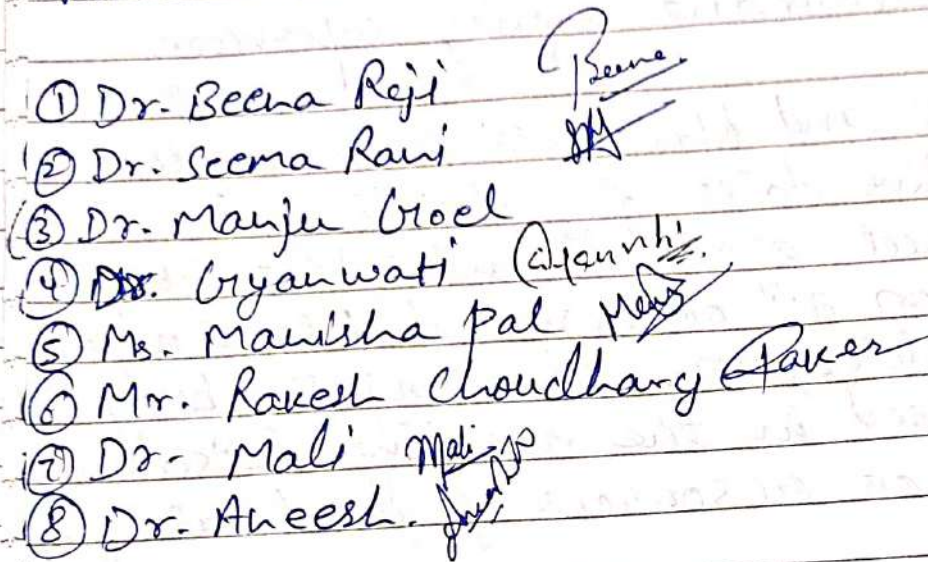 ① Dr. Beena Reji Beena
② Dr. Seema Rani
③ Dr. Manju Goel
④ Dr. Gyanwati
⑤ Ms. Manisha Pal
⑥ Mr. Rakesh Choudhary
⑦ Dr. Mali Mali
⑧ Dr. Aneesh.